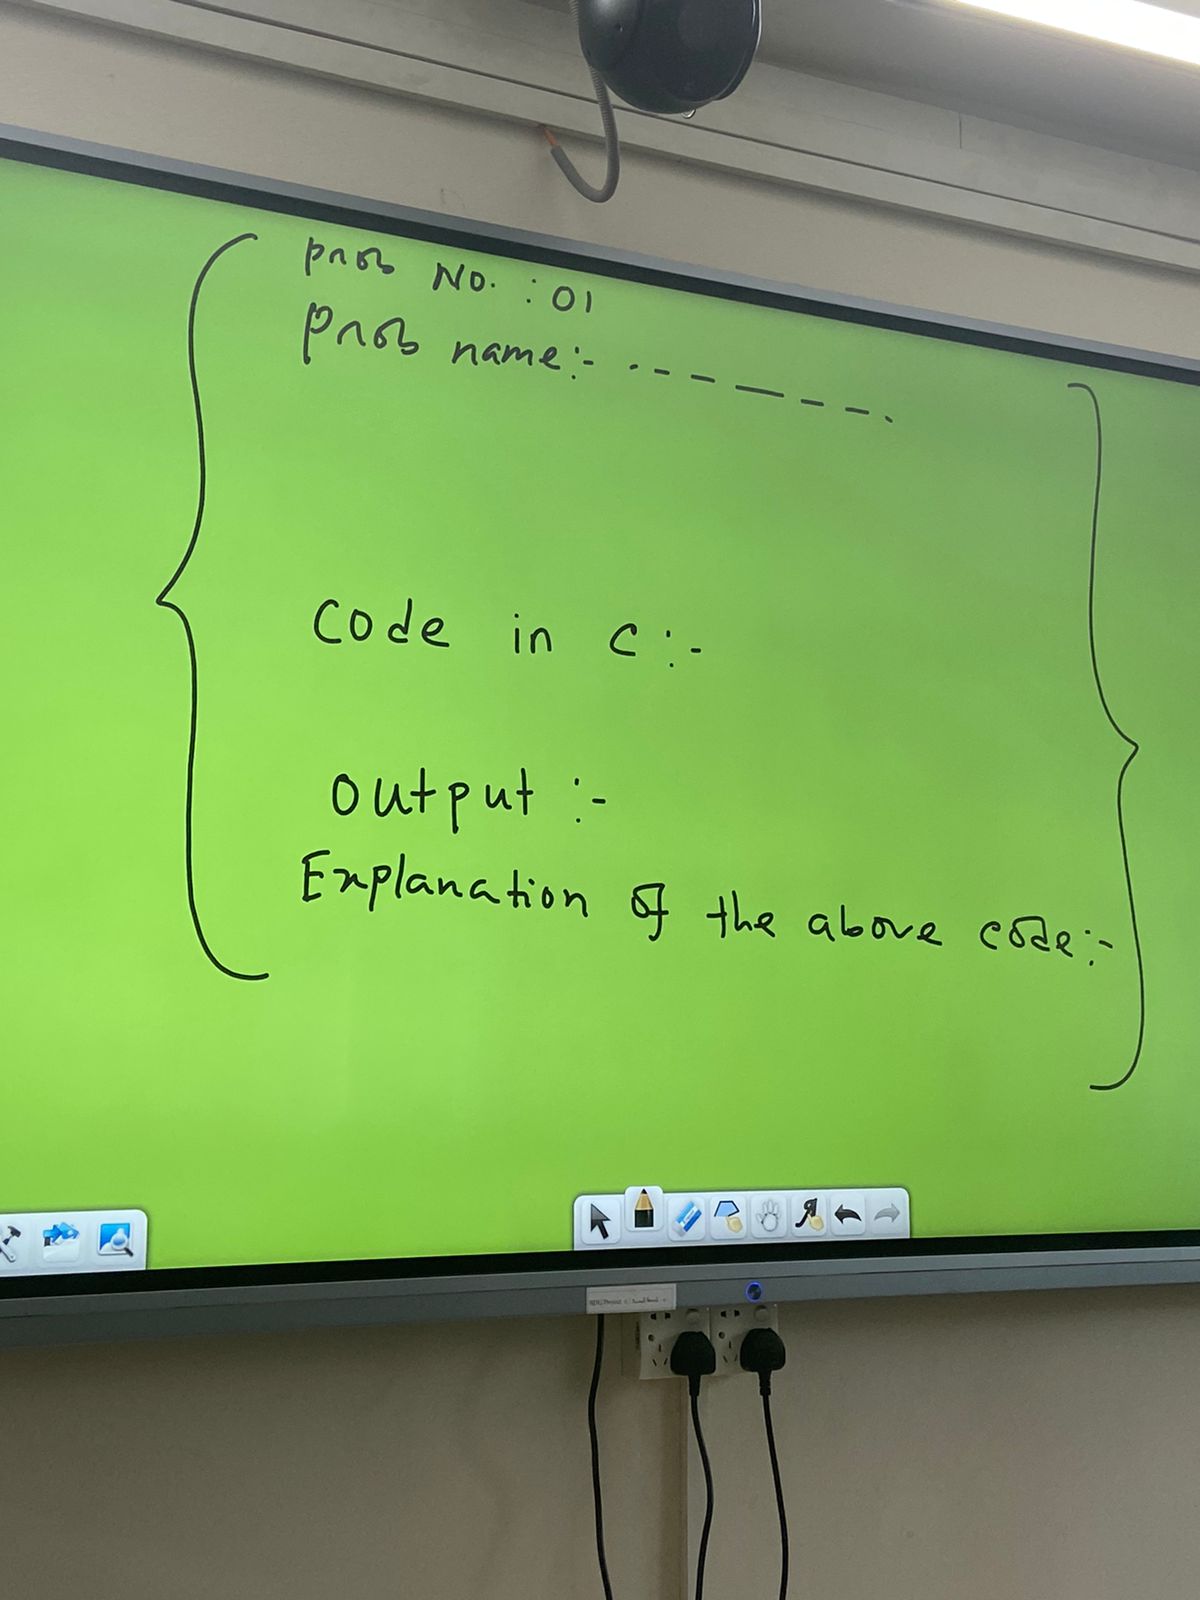 Prob No. : 01
Prob name:- .. - - — - - .
Code in C :-
Output :-
Explanation of the above code:-